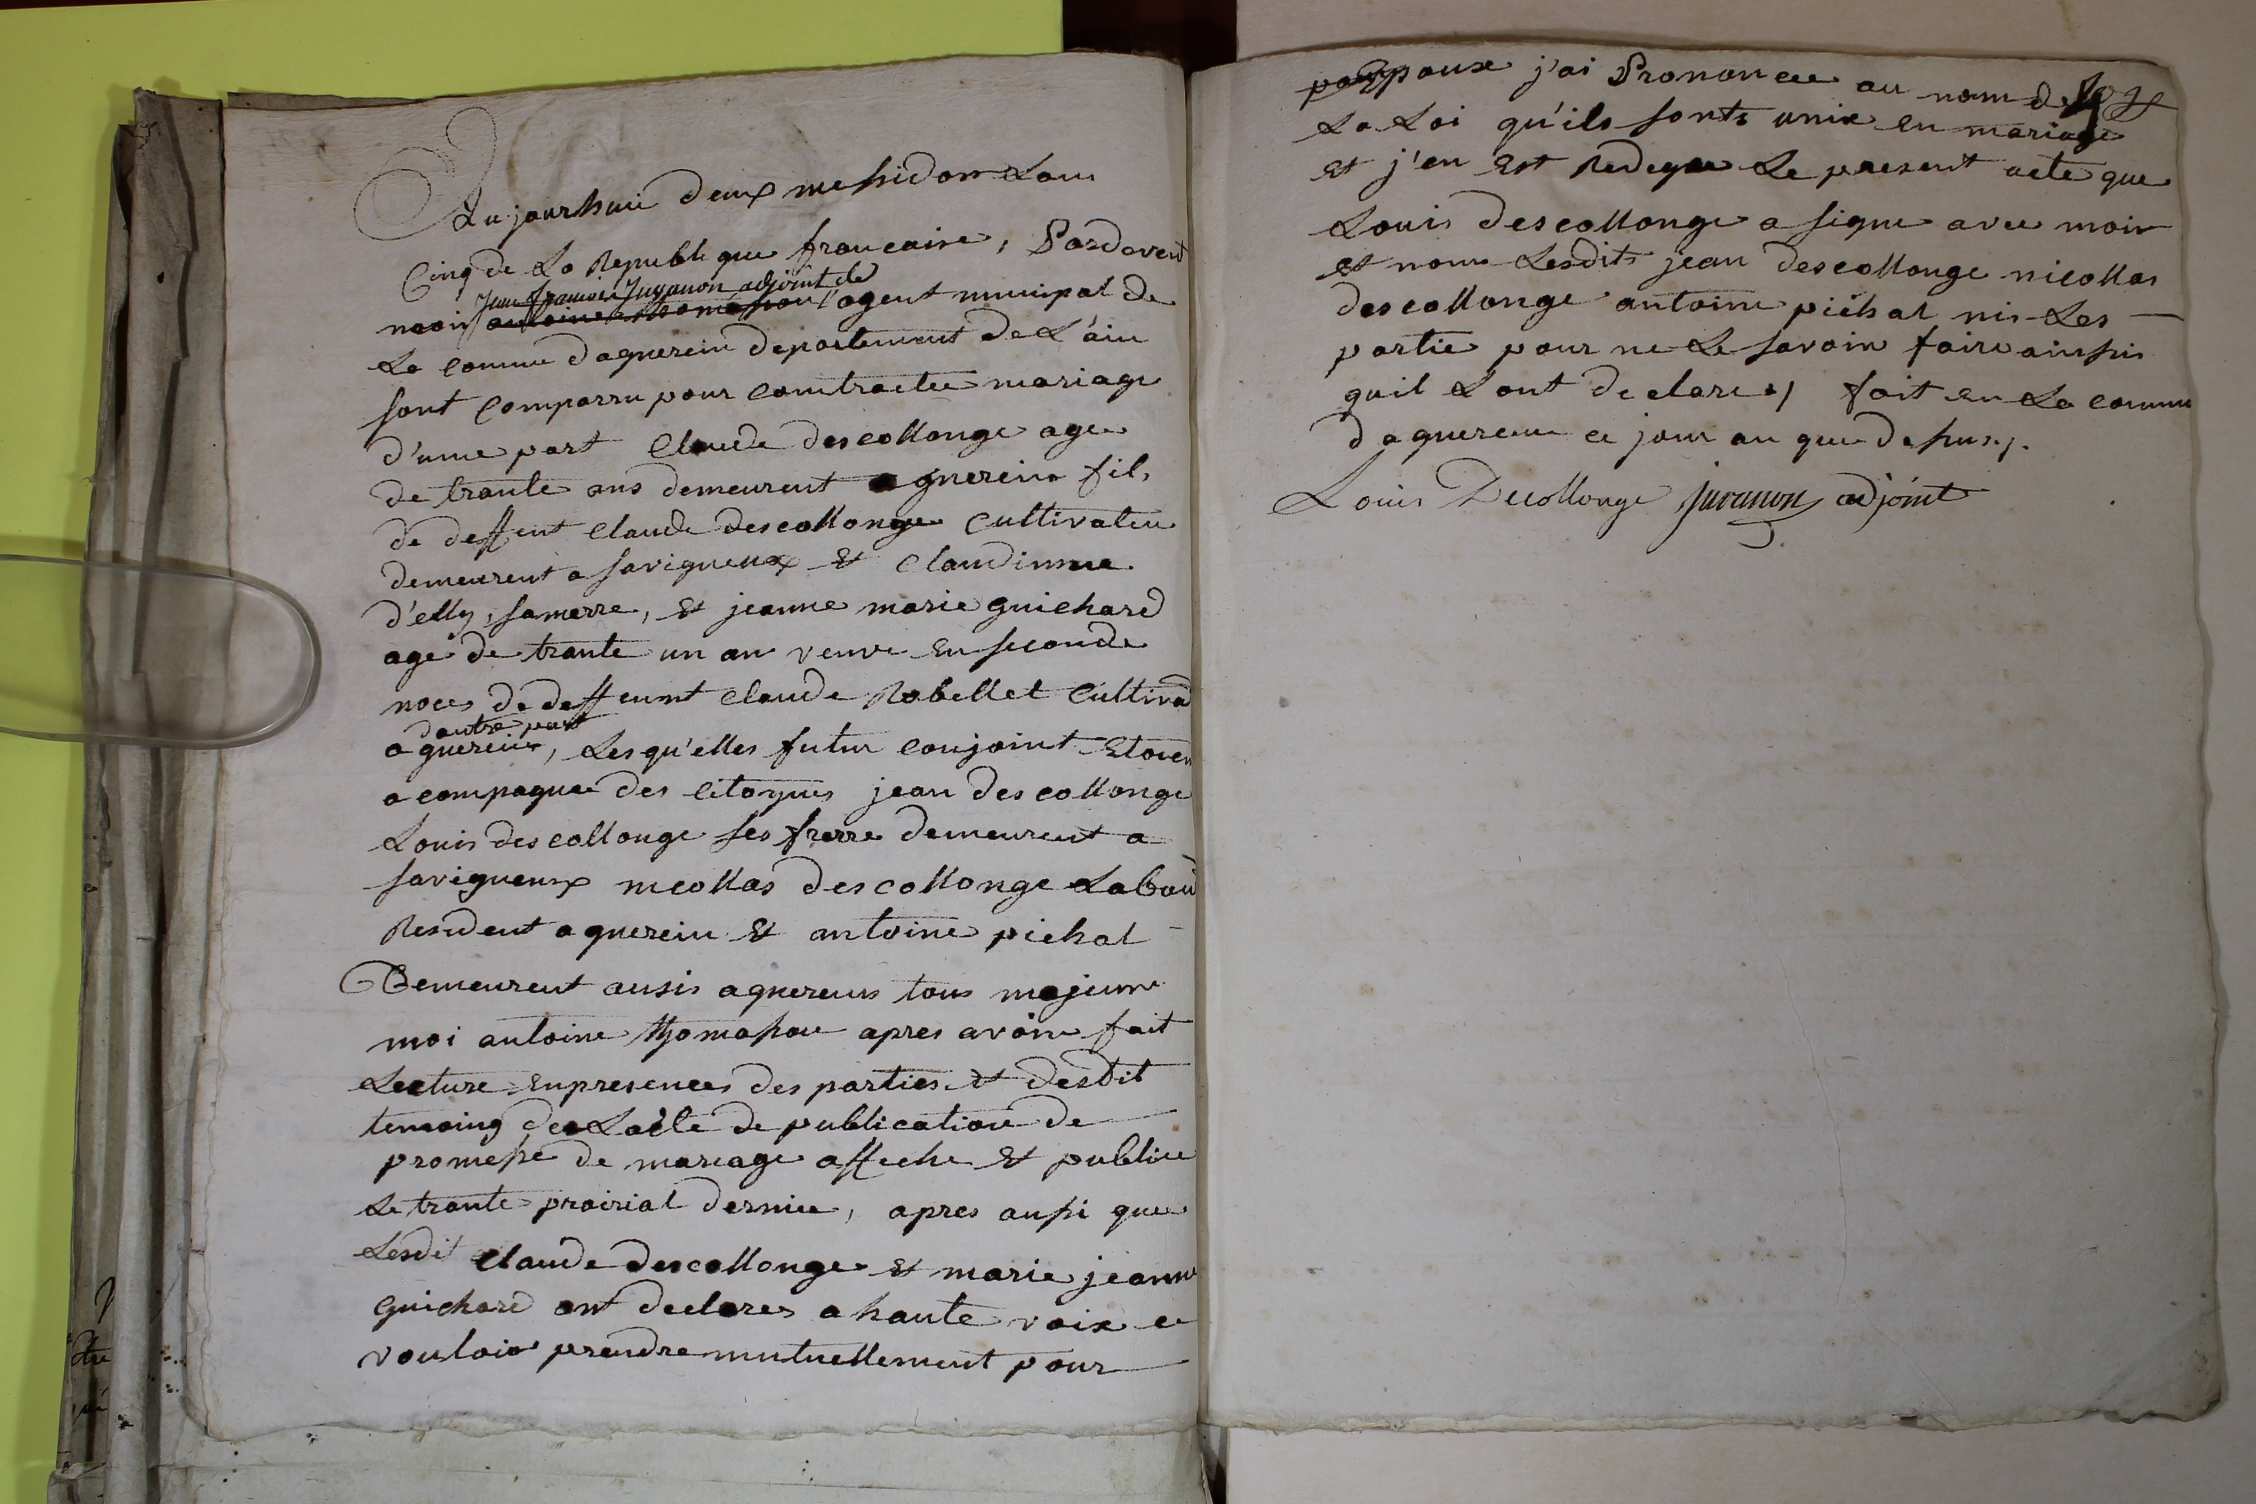 Aujourhui deux messidor Lan
Cinq de La Republique francaise, Pardevent
Jean francois Juvanon adjoint de
moir antoine thomasson l'agent municipal de
La comune daguerein departement de L'ain
sont comparru pour contractee mariage
d'une part Claude descollonge agee
de trante ans demeurent aguerein fils
de deffent Claude descollonge Cultivateu
demeurent a savigneux et Claudinne
d'elly, samerre, et jeanne marie guichard
agé de trante un an veuve en seconde
noces de deffeunt Claude Robellet Cultiva
dautre part
aguerein, Lesqu'elles futur conjoint Etoien
acompagnee des Citoyens jean descollonge
Louis descollonge ses frerre demeurent a
savigneux nicollas descollonge Labou
Resident aguerein et antoine pichat
Demeurent ausis aguereins tous majeure
moi antoine thomasson apres avoire fait
Lecture enpresences des parties et desdit
temoing de Lacte de publication de
promesse de mariage affiche et publiee
Le trante prairial derniee, apres aussi que
Lesdit Claude descollonge et marie jeanne
guichard ont declares a haute voix ce
vouloir prendre mutuellement pour
epoux j'ai Prononcee au nom de
La Loi qu'ils sonts unix en mariage
et j'en est Redegee Le present acte que
Louis descollonge a signe avec moir
et nom Lesdits jean descollonge nicollas
descollonge antoine pichat nis Les
partie pour ne Le savoir faire ainssis
quil L'ont declaree, fait en La comune
daguerein ce jour an que desus,.
Louis Decollonge Juvanon adjoint